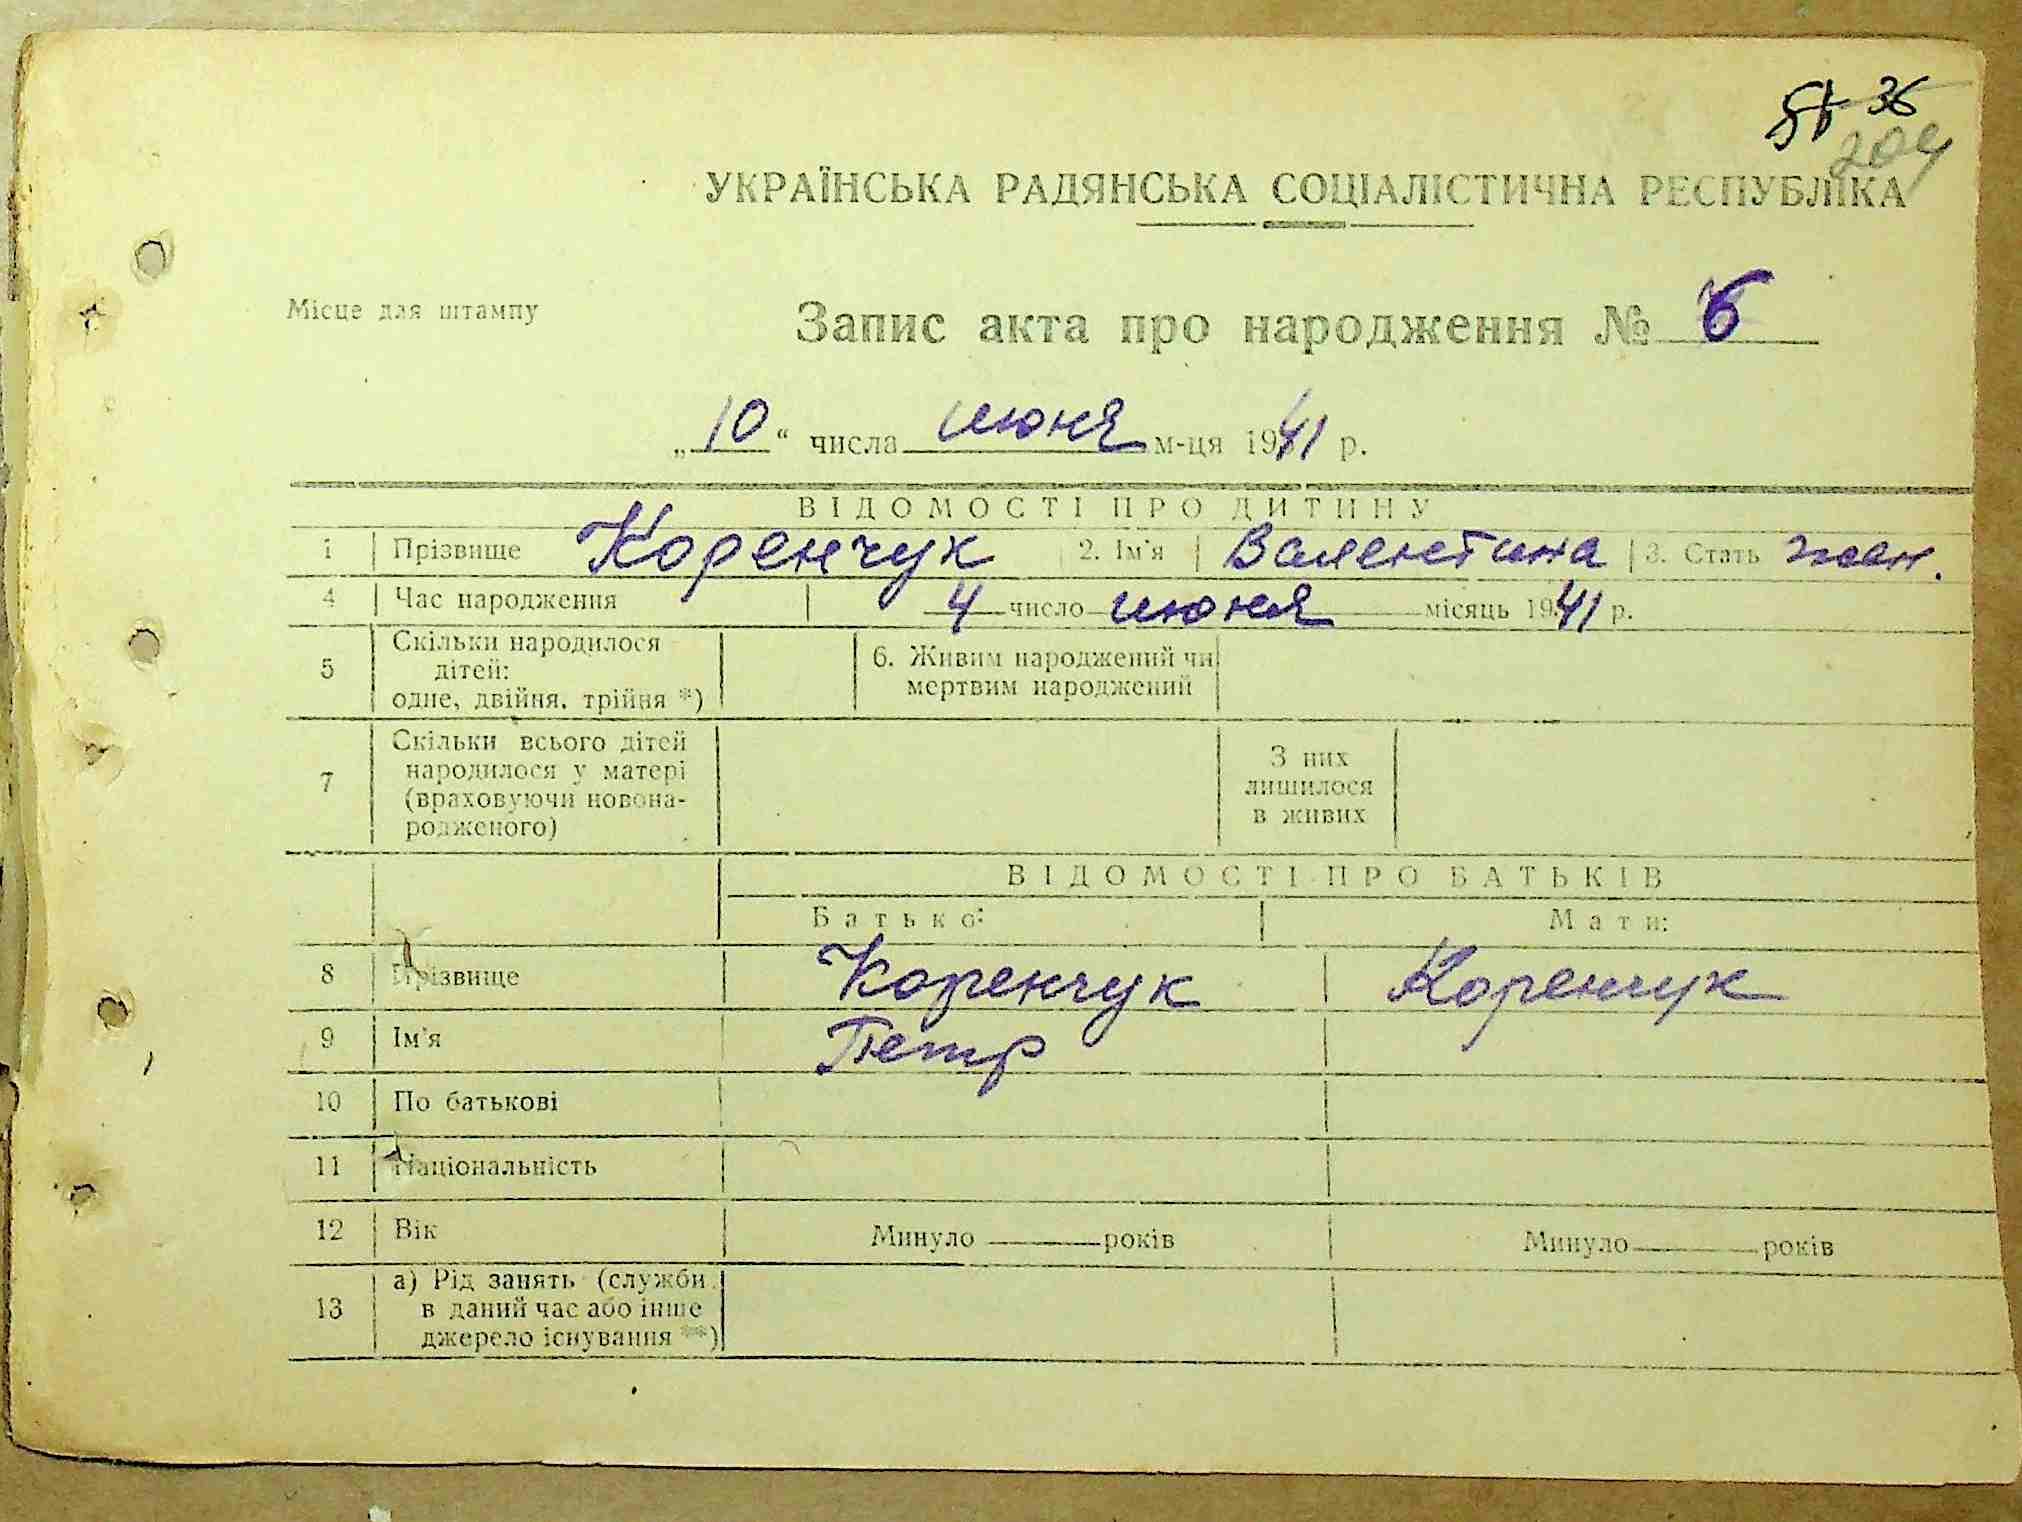 36
204
УКРАЇНСЬКА РАДЯНСЬКА СОЦІАЛІСТИЧНА РЕСПУБЛІКА
Місце для штампу
Запис акта про народження № 6
„10“ числа июня м-ця 1941 р.
ВІДОМОСТІ ПРО ДИТИНУ
1 Прізвище Коренчук 2. Ім'я Валентина 3. Стать жен.
4 Час народження 4 число июня місяць 1941 р.
5 Скільки народилося дітей: одне, двійня, трійня *) 6. Живим народжений чи мертвим народжений
7 Скільки всього дітей народилося у матері (враховуючи новонародженого) З них лишилося в живих
ВІДОМОСТІ ПРО БАТЬКІВ
Батько: Мати:
8 Прізвище Коренчук Коренчук
9 Ім'я Петр
10 По батькові
11 Національність
12 Вік Минуло років Минуло років
13 а) Рід занять (служби в даний час або інше джерело існування **)